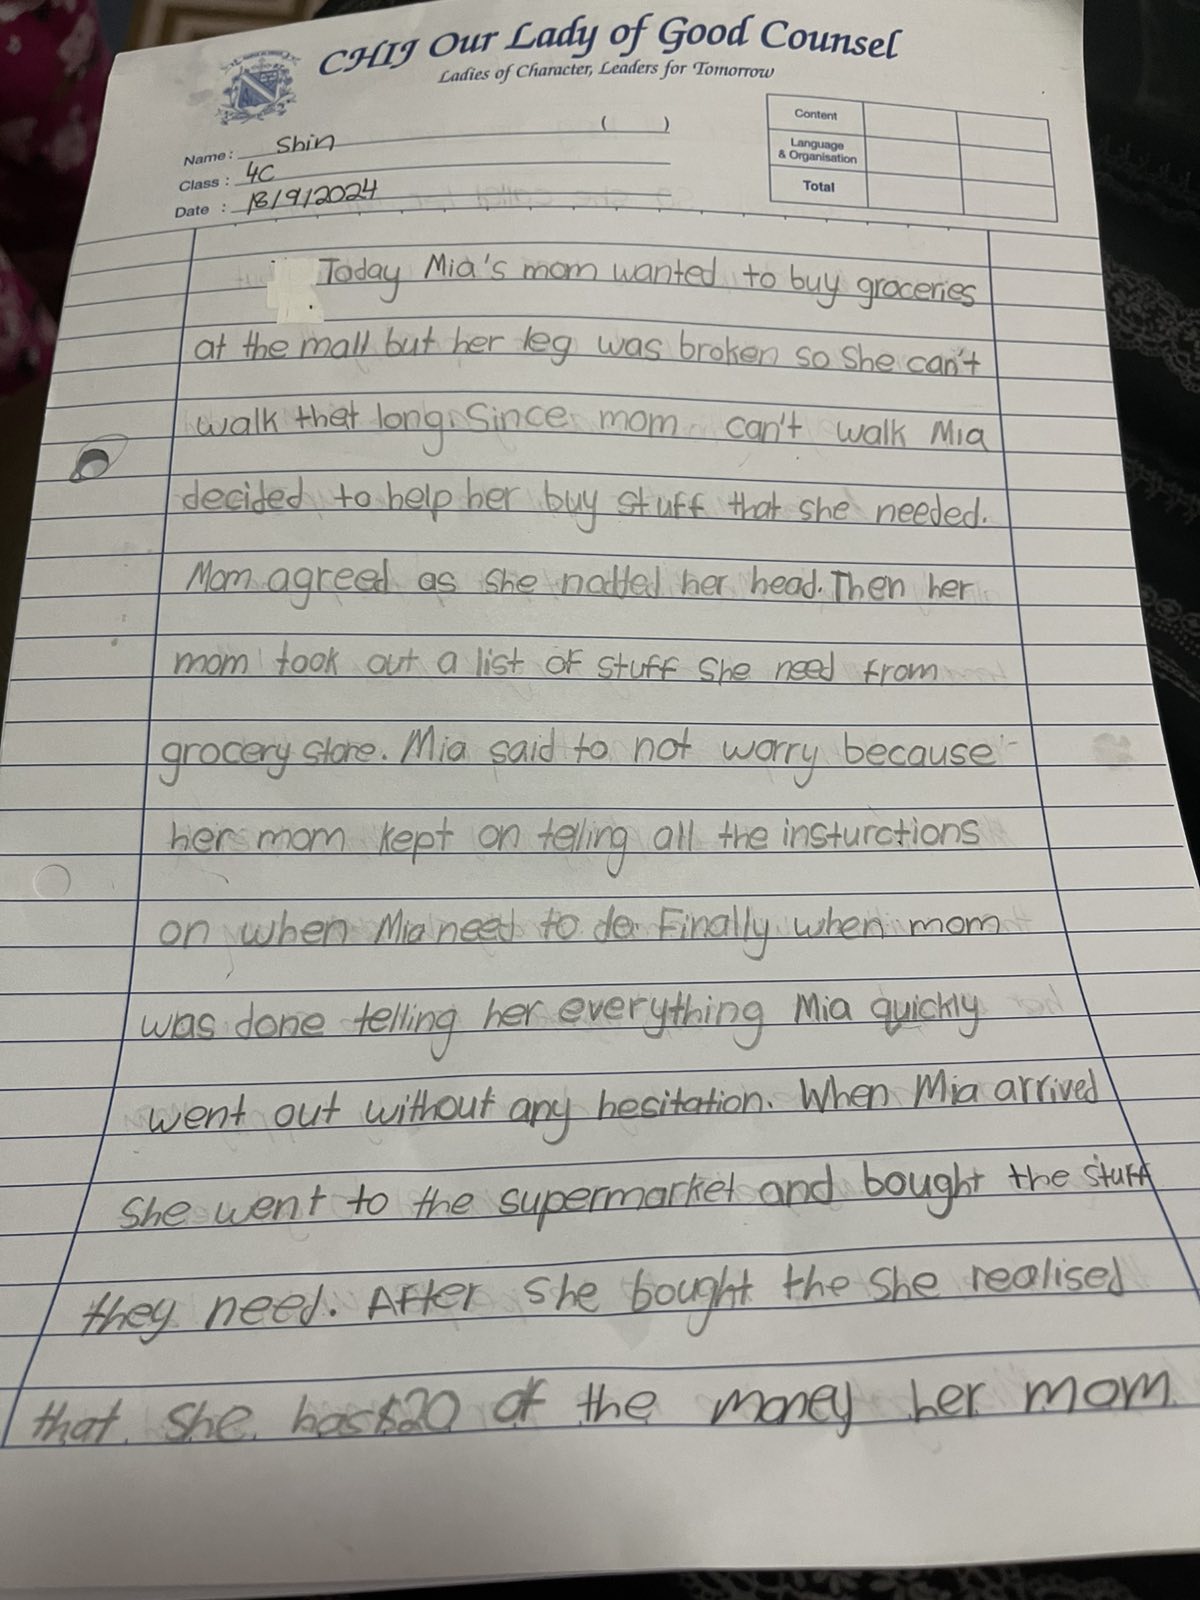 CHIJ Our Lady of Good Counsel
Ladies of Character, Leaders for Tomorrow
Content
Language & Organisation
Total
Name: Shin ( )
Class: 4C
Date: 18/9/2024
Today Mia's mom wanted to buy groceries
at the mall but her leg was broken so she can't
walk that long. Since mom can't walk Mia
decided to help her buy stuff that she needed.
Mom agreed as she nodded her head. Then her
mom took out a list of stuff she need from
grocery store. Mia said to not worry because
her mom kept on telling all the insturctions
on when Mia need to do. Finally when mom
was done telling her everything Mia quickly
went out without any hesitation. When Mia arrived
she went to the supermarket and bought the stuff
they need. After she bought the she realised
that she has $20 of the money her mom